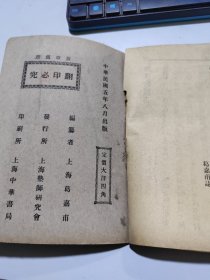 中華民國五年八月出版
定價大洋四角
翻印必究
編纂者 上海葛嘉甫
發行所 上海塾師研究會
印刷所 上海中華書局
葛嘉甫誌